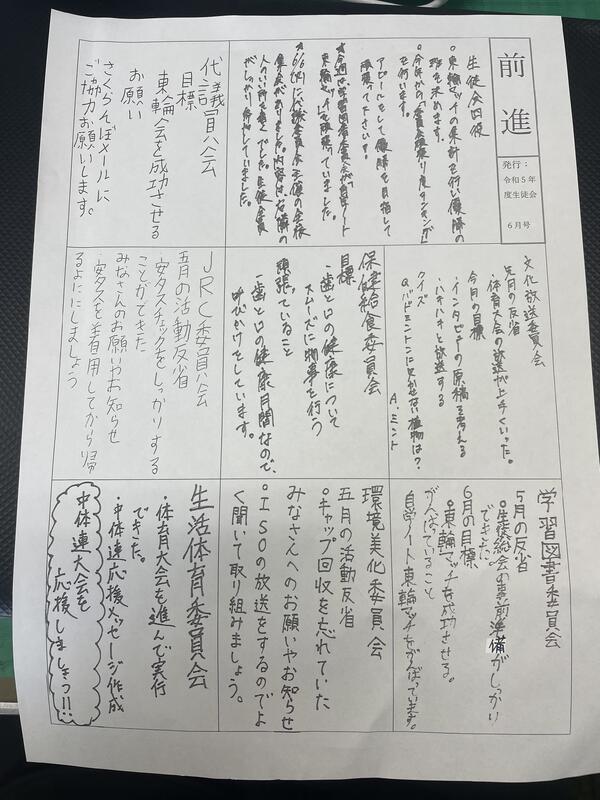 前進
発行:
令和5年
度生徒会
6月号
生徒会四役
○東輪マッチの集計を行い優勝の
班を決めます。
○今年から「委員会頑張り度ランキング」
を行います。
アピールをして優勝を目指して
頑張ってください。
東輪マッチを頑張っていました。
がしっかり
していました。
代議員会
目標
東輪会を成功させる
お願い
さくらんぼメールに
ご協力お願いします。
文化放送委員会
先月の反省
・体育大会の放送が上手くいった。
今月の目標
・インタビューの原稿を考える
・ハキハキと放送する
クイズ
Q.バドミントンに欠かせない植物は?
A.ミント
保健給食委員会
目標
・歯と口の健康について
スムーズに物事を行う
頑張っていること
・歯と口の健康月間なので、
呼びかけをしています。
JRC委員会
五月の活動反省
・安タスチェックをしっかりする
ことができた
みなさんのお願いやお知らせ
・安タスを着用してから帰
るようにしましょう
学習図書委員会
5月の反省
○生徒総会の事前準備がしっかり
できた。
6月の目標
○東輪マッチを成功させる。
がんばっていること
自学ノート東輪マッチをがんばっています。
環境美化委員会
五月の活動反省
○キャップ回収を忘れていた
みなさんへのお願いやお知らせ
○ISOの放送をするのでよ
く聞いて取り組みましょう。
生活体育委員会
・体育大会を進んで実行
できた。
・中体連応援メッセージ作成
中体連大会を
応援しましょう!!